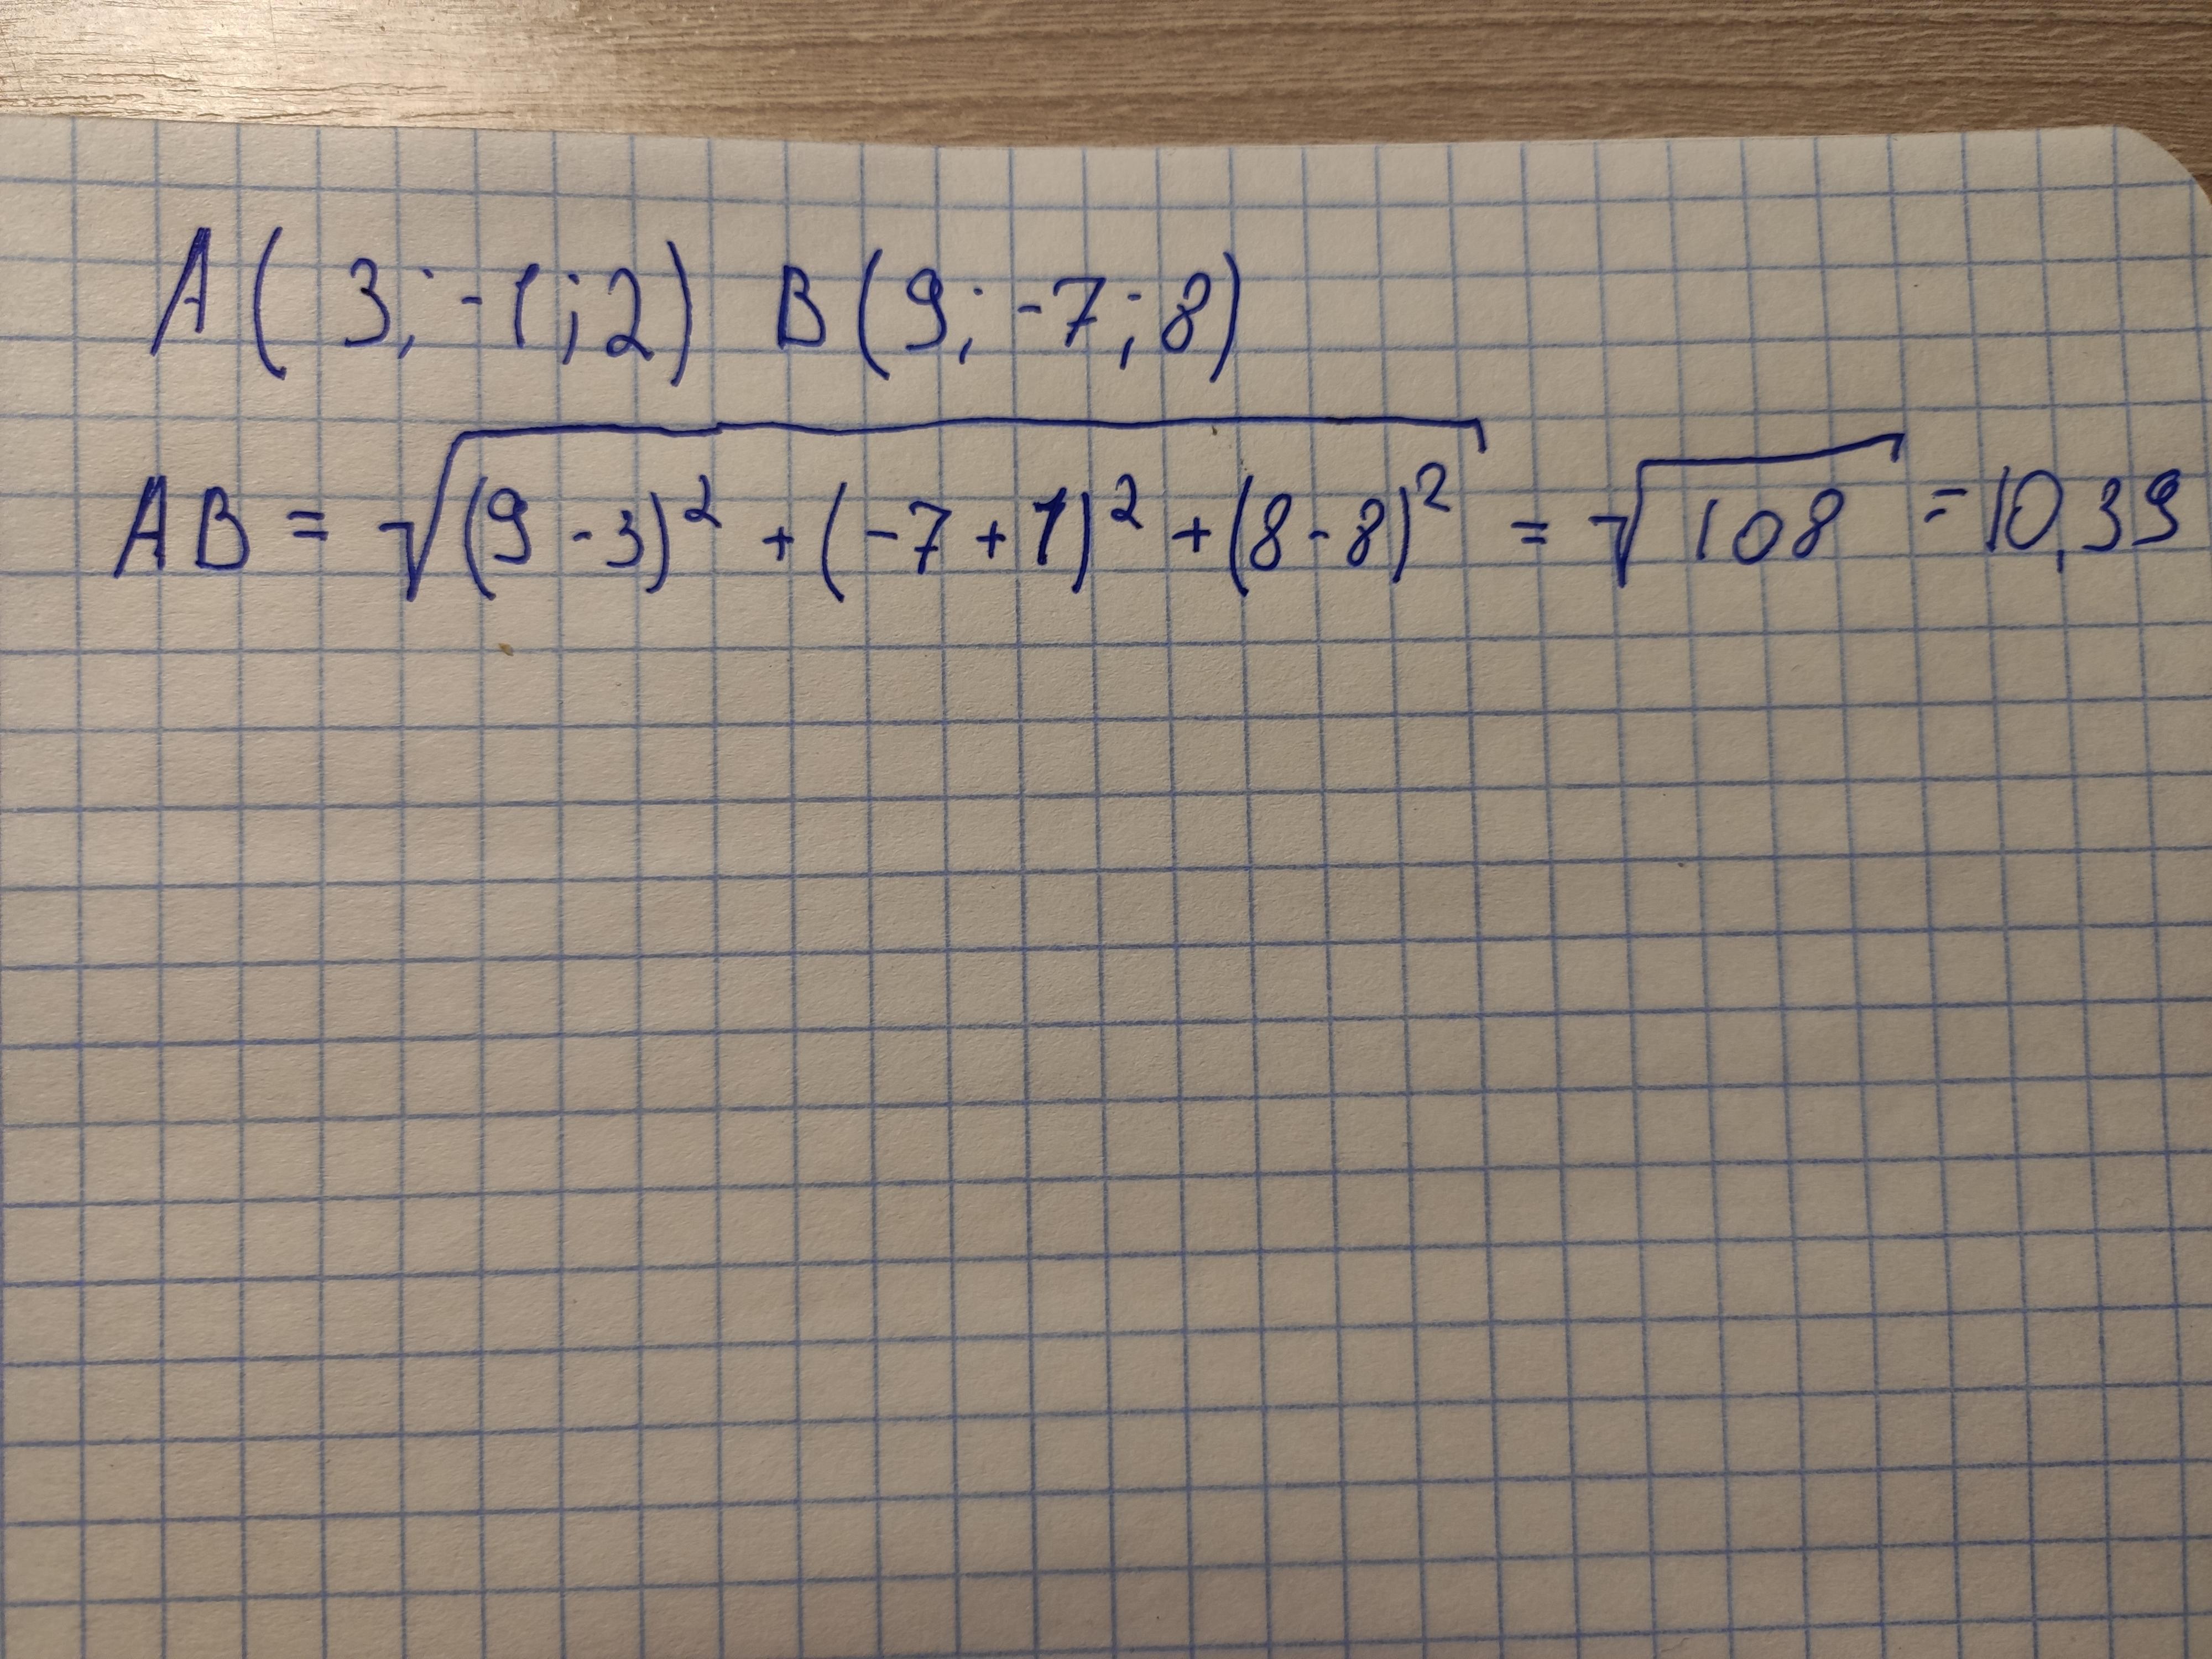 A( 3; -1; 2) B(9; -7; 8)
AB = √((9-3)² + (-7+1)² + (8-8)²) = √108 = 10,39